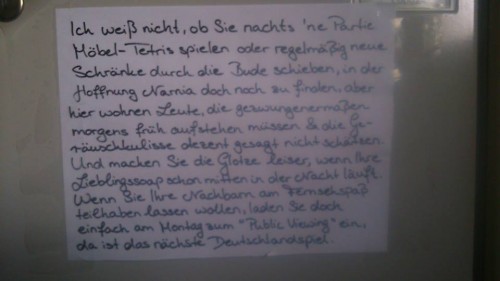 Ich weiß nicht, ob Sie nachts 'ne Partie
Möbel-Tetris spielen oder regelmäßig neue
Schränke durch die Bude schieben, in der
Hoffnung Narnia doch noch zu finden, aber
hier wohnen Leute, die gezwungenermaßen
morgens früh aufstehen müssen & die Ge-
räuschkulisse dezent gesagt nicht schätzen.
Und machen Sie die Glotze leiser, wenn Ihre
Lieblingssoap schon mitten in der Nacht läuft.
Wenn Sie Ihre Nachbarn am Fernsehspaß
teilhaben lassen wollen, laden Sie doch
einfach am Montag zum "Public Viewing" ein,
da ist das nächste Deutschlandspiel.